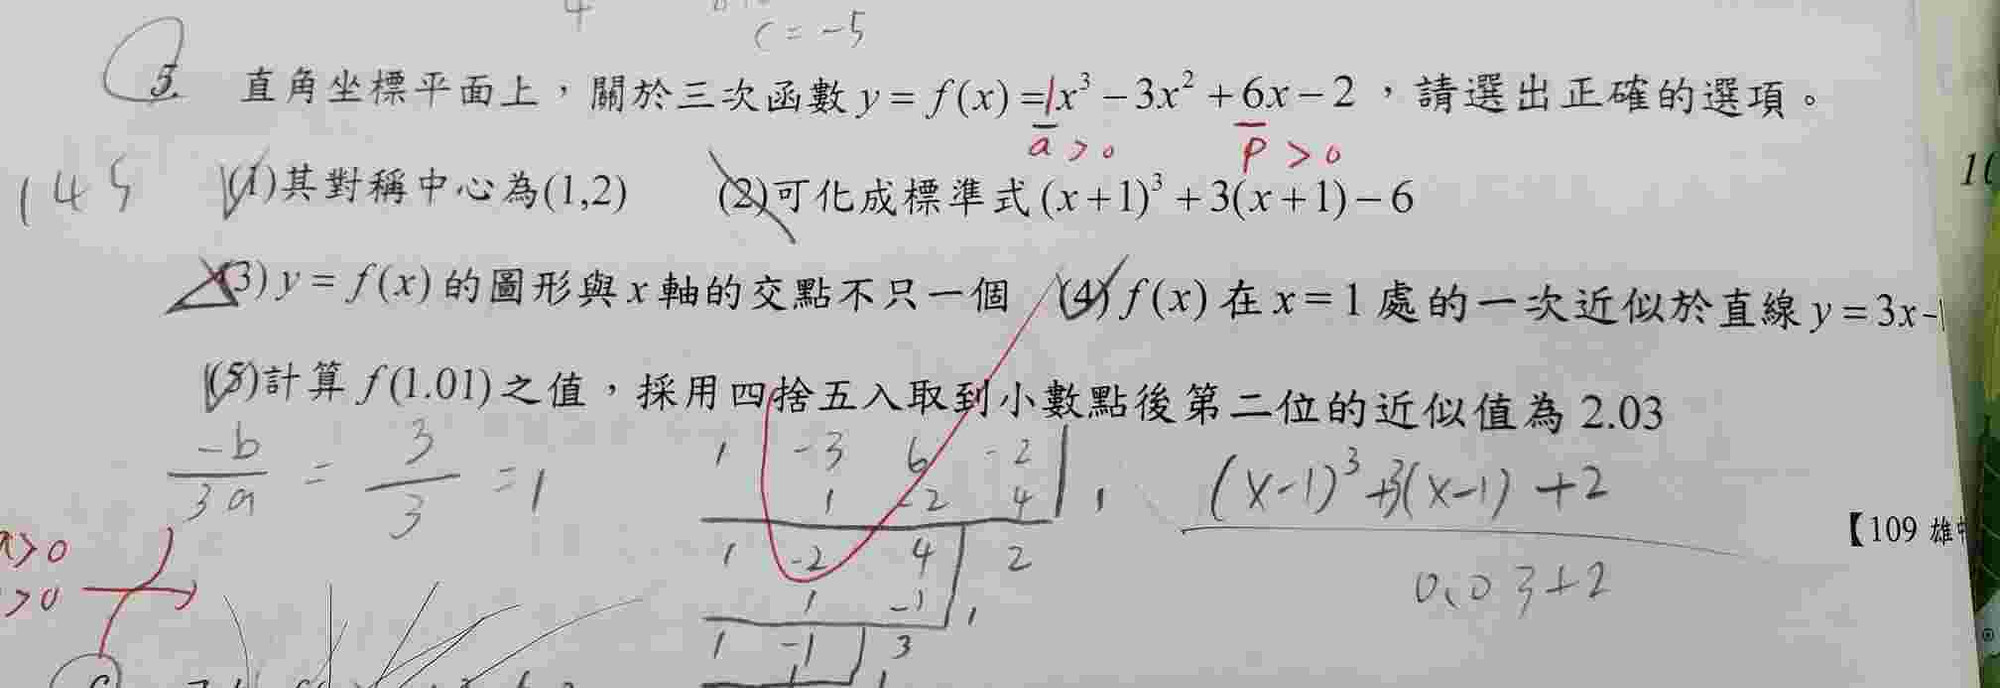 c = -5
5. 直角坐標平面上，關於三次函數 y = f(x) = 1x³ − 3x² + 6x − 2，請選出正確的選項。
a > 0 p > 0
1 4 5 (1)其對稱中心為(1,2) (2)可化成標準式 (x+1)³ + 3(x+1) − 6
(3) y = f(x) 的圖形與 x 軸的交點不只一個 (4) f(x) 在 x = 1 處的一次近似於直線 y = 3x−
(5)計算 f(1.01) 之值，採用四捨五入取到小數點後第二位的近似值為 2.03
-b/3a = 3/3 = 1
1 -3 6 -2
1 -2 4 | 1
1 -2 4 2
1 -1 | 1
1 -1 3
1 | 1
(x-1)³ + 3(x-1) + 2
0.03 + 2
【109 雄
>0
>0